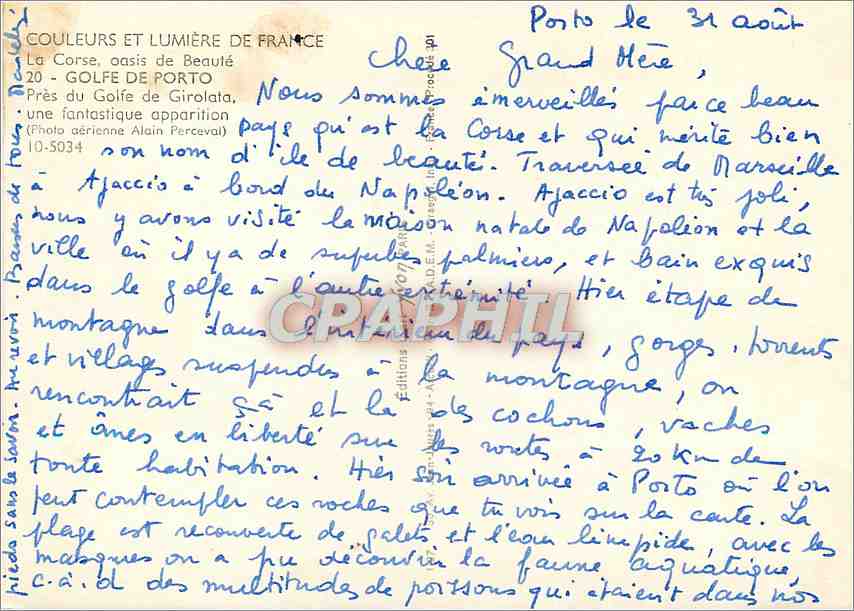 Porto le 31 août
COULEURS ET LUMIÈRE DE FRANCE
La Corse, oasis de Beauté
20 - GOLFE DE PORTO
Près du Golfe de Girolata,
une fantastique apparition
(Photo aérienne Alain Perceval)
10-5034
Chère Grand Mère,
Nous sommes émerveillés par ce beau
pays qu'est la Corse et qui mérite bien
son nom d'ile de beauté. Traversée de Marseille
à Ajaccio à bord du Napoléon. Ajaccio est très joli,
nous y avons visité la maison natale de Napoléon et la
ville où il y a de superbes palmiers, et bain exquis
dans le golfe à l'autre extrémité. Hier étape de
montagne dans l'intérieur du pays, gorges, torrents
et villages suspendus à la montagne, on
rencontrait çà et la des cochons, vaches
et ânes en liberté sur les routes à 20 Km de
toute habitation. Hier soir arrivée à Porto où l'on
peut contempler ces roches que tu vois sur la carte. La
plage est recouverte de galets et l'eau limpide, avec les
masques on a pu découvrir la faune aquatique,
c.à.d des multitudes de poissons qui étaient dans nos
pieds sans le savoir. Au revoir. Baisers de tous.
Éditions yvon PARIS
CPAPHIL